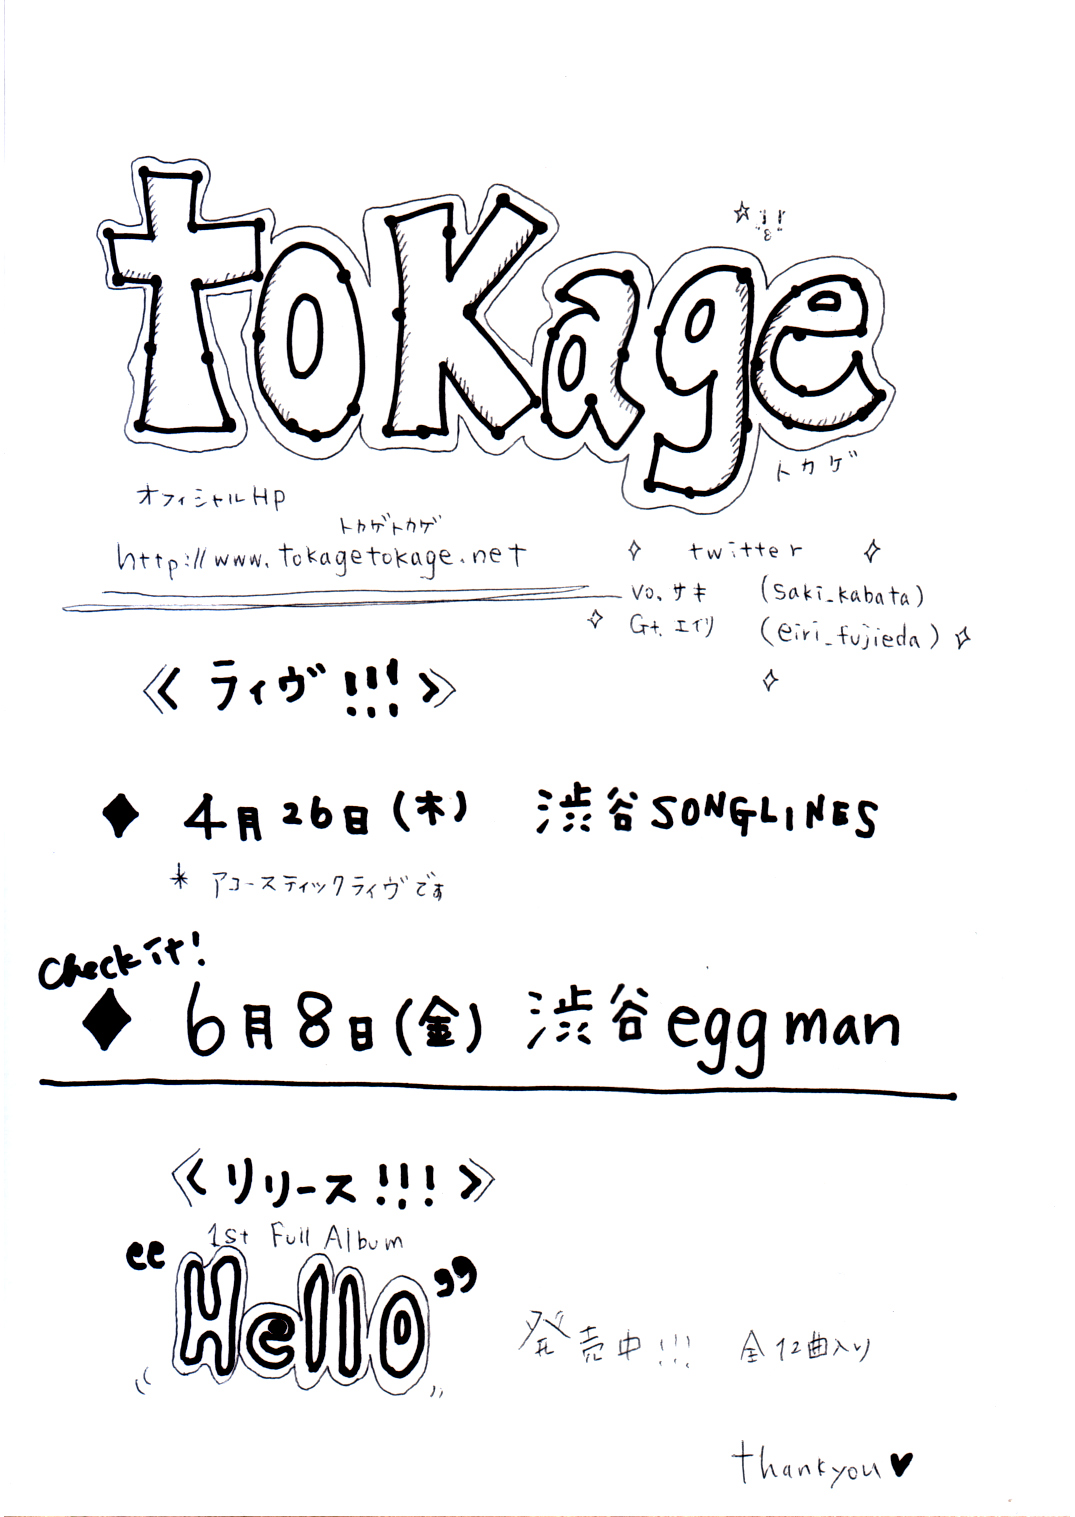 toKage
トカゲ
オフィシャルHP
トカゲトカゲ
http://www.tokagetokage.net
twitter
Vo. サキ (saki_kabata)
Gt. エイリ (eiri_fujieda)
《 ライヴ!!! 》
◆ 4月26日(木) 渋谷SONGLINES
* アコースティックライヴです
Check it!
◆ 6月8日(金) 渋谷eggman
《 リリース!!! 》
1st Full Album
“Hello”
発売中!!! 全12曲入り
thankyou♥